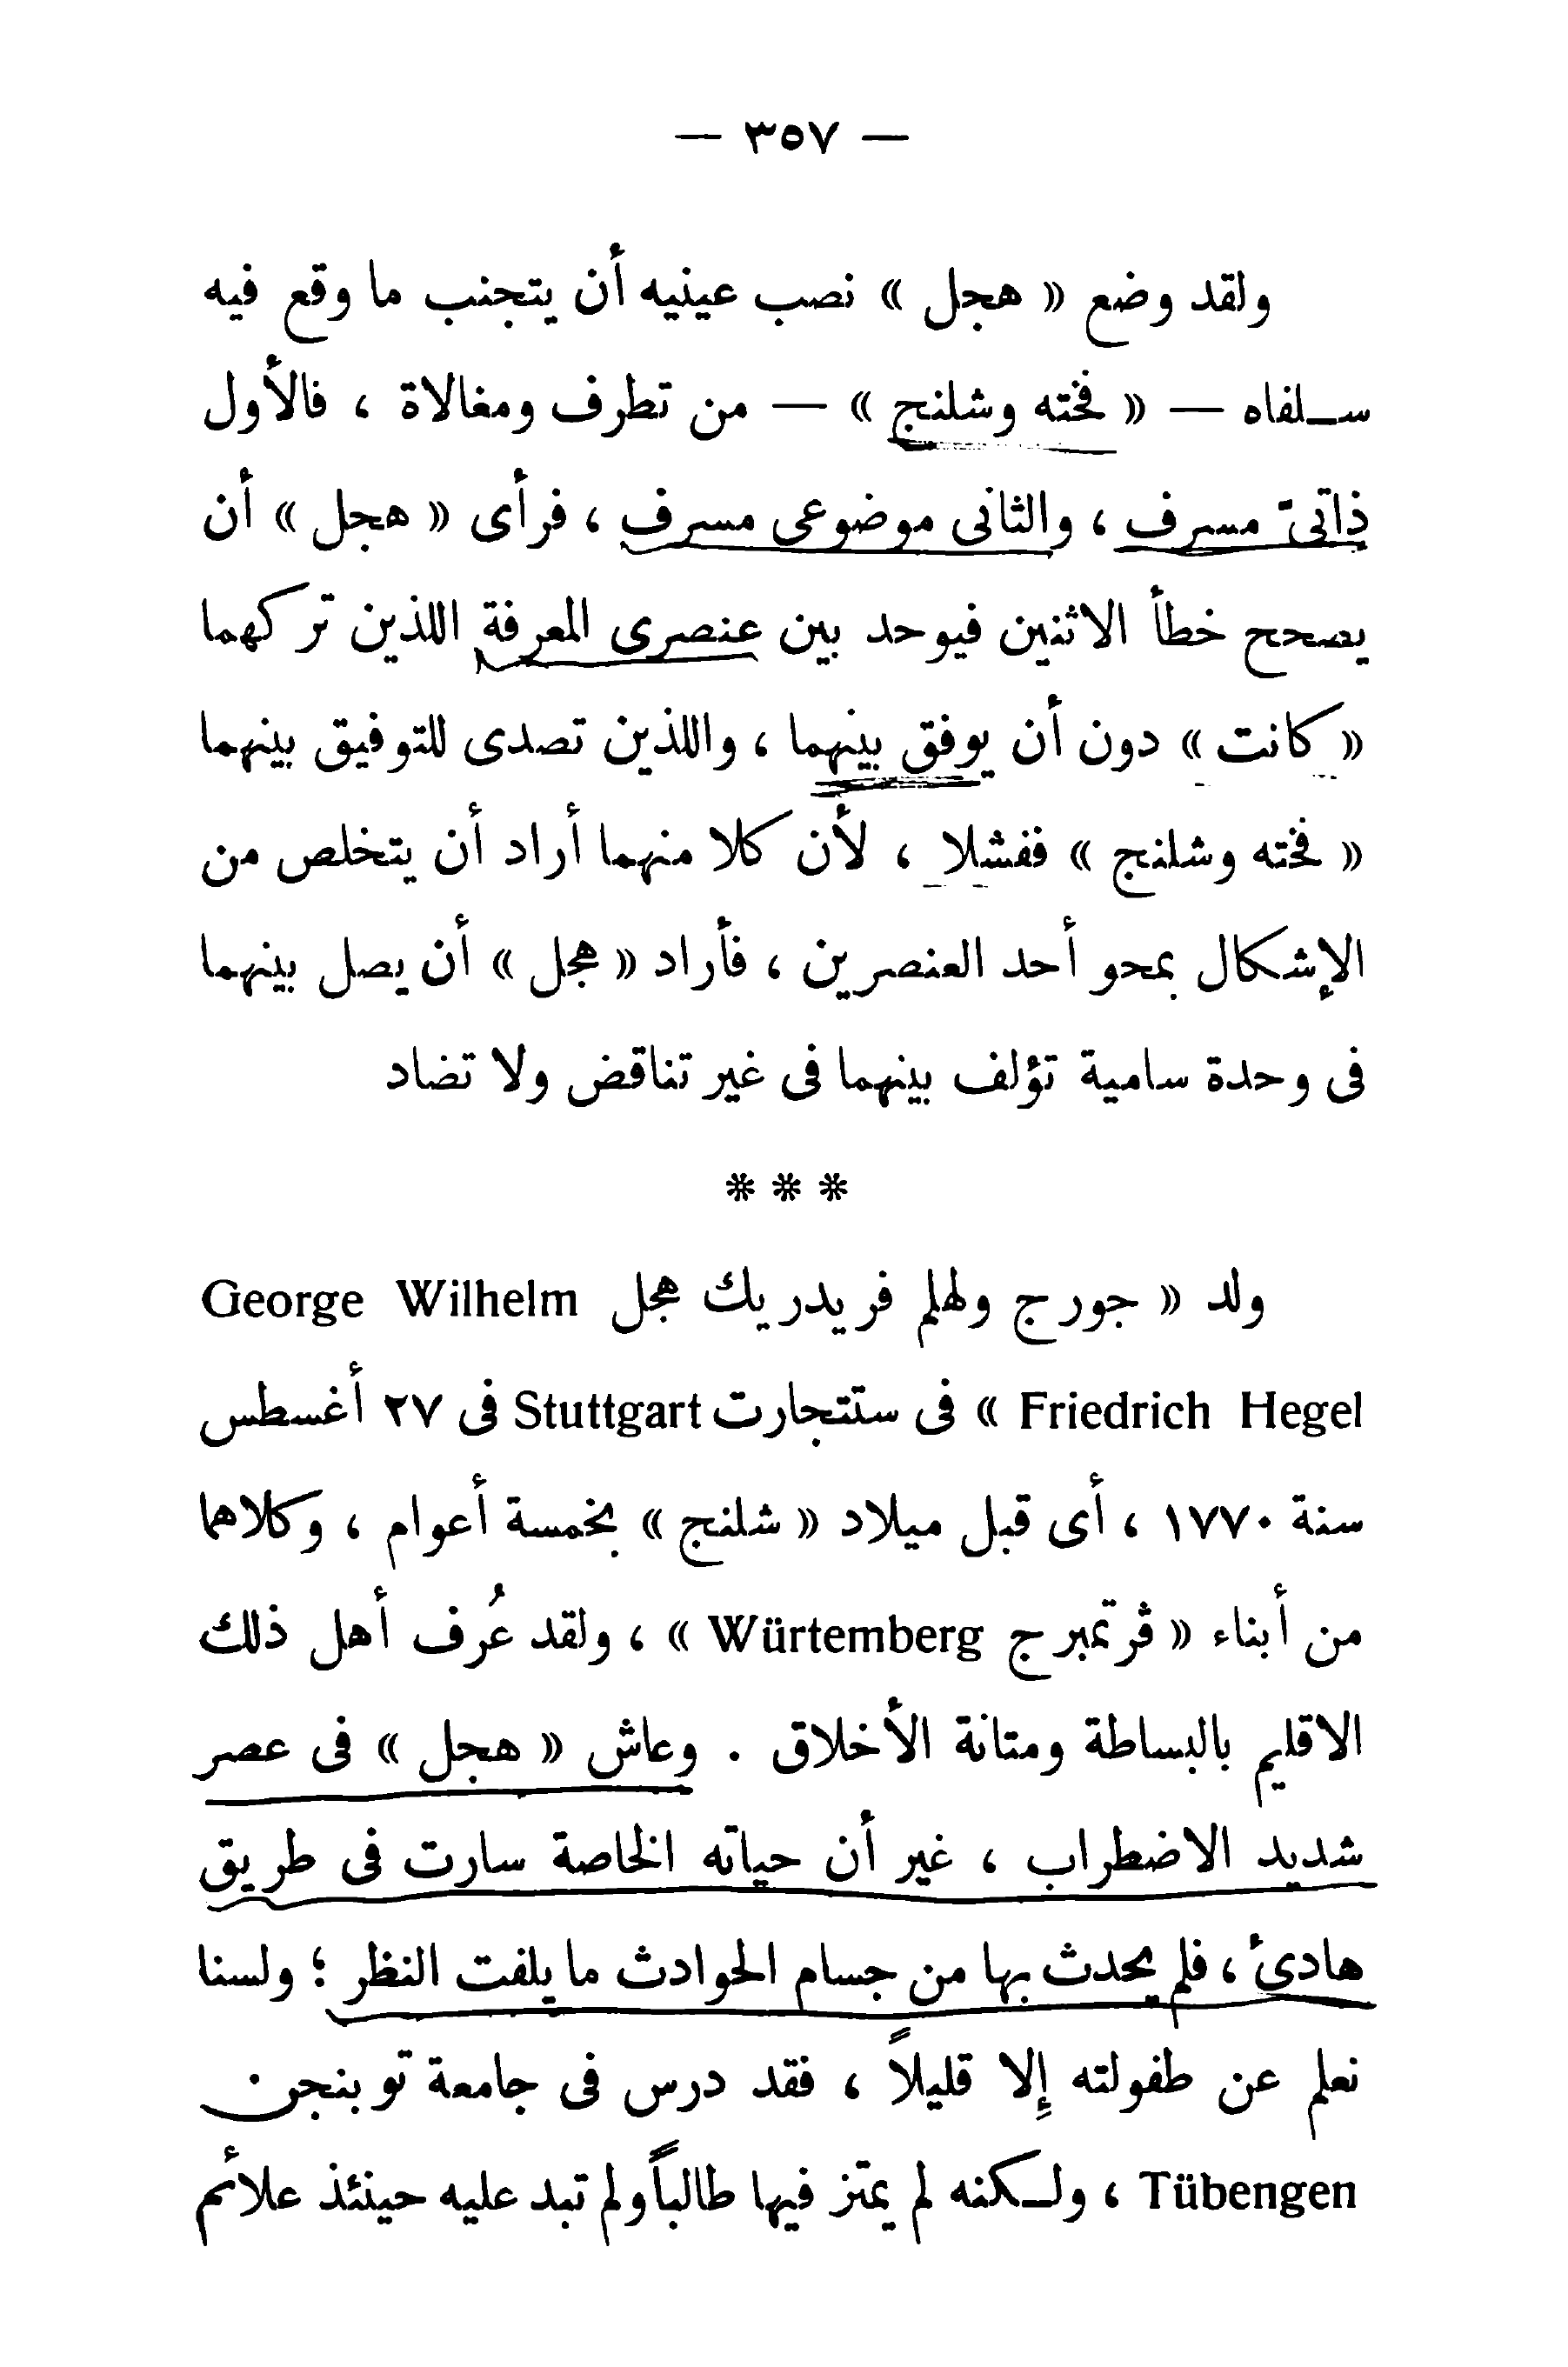 — ٣٥٧ —
ولقد وضع « هجل » نصب عينيه أن يتجنب ما وقع فيه
سـلفاه — « فخته وشلنج » — من تطرف ومغالاة ، فالأول
ذاتىّ مسرف ، والثانى موضوعى مسرف ، فرأى « هجل » أن
يصحح خطأ الاثنين فيوحد بين عنصرى المعرفة اللذين تركهما
« كانت » دون أن يوفق بينهما ، واللذين تصدى للتوفيق بينهما
« فخته وشلنج » ففشلا ، لأن كلا منهما أراد أن يتخلص من
الإشكال بمحو أحد العنصرين ، فأراد « هجل » أن يصل بينهما
فى وحدة سامية تؤلف بينهما فى غير تناقض ولا تضاد
* * *
ولد « جورج ولهلم فريدريك هجل George Wilhelm
Friedrich Hegel » فى ستتجارت Stuttgart فى ٢٧ أغسطس
سنة ١٧٧٠ ، أى قبل ميلاد « شلنج » بخمسة أعوام ، وكلاهما
من أبناء « ڤرتمبرج Würtemberg » ، ولقد عُرف أهل ذلك
الاقليم بالبساطة ومتانة الأخلاق . وعاش « هجل » فى عصر
شديد الاضطراب ، غير أن حياته الخاصة سارت فى طريق
هادئ ، فلم يحدث بها من جسام الحوادث ما يلفت النظر ؛ ولسنا
نعلم عن طفولته إلا قليلاً ، فقد درس فى جامعة توبنجن
Tübengen ، ولـكنه لم يمتز فيها طالباً ولم تبد عليه حينئذ علائم